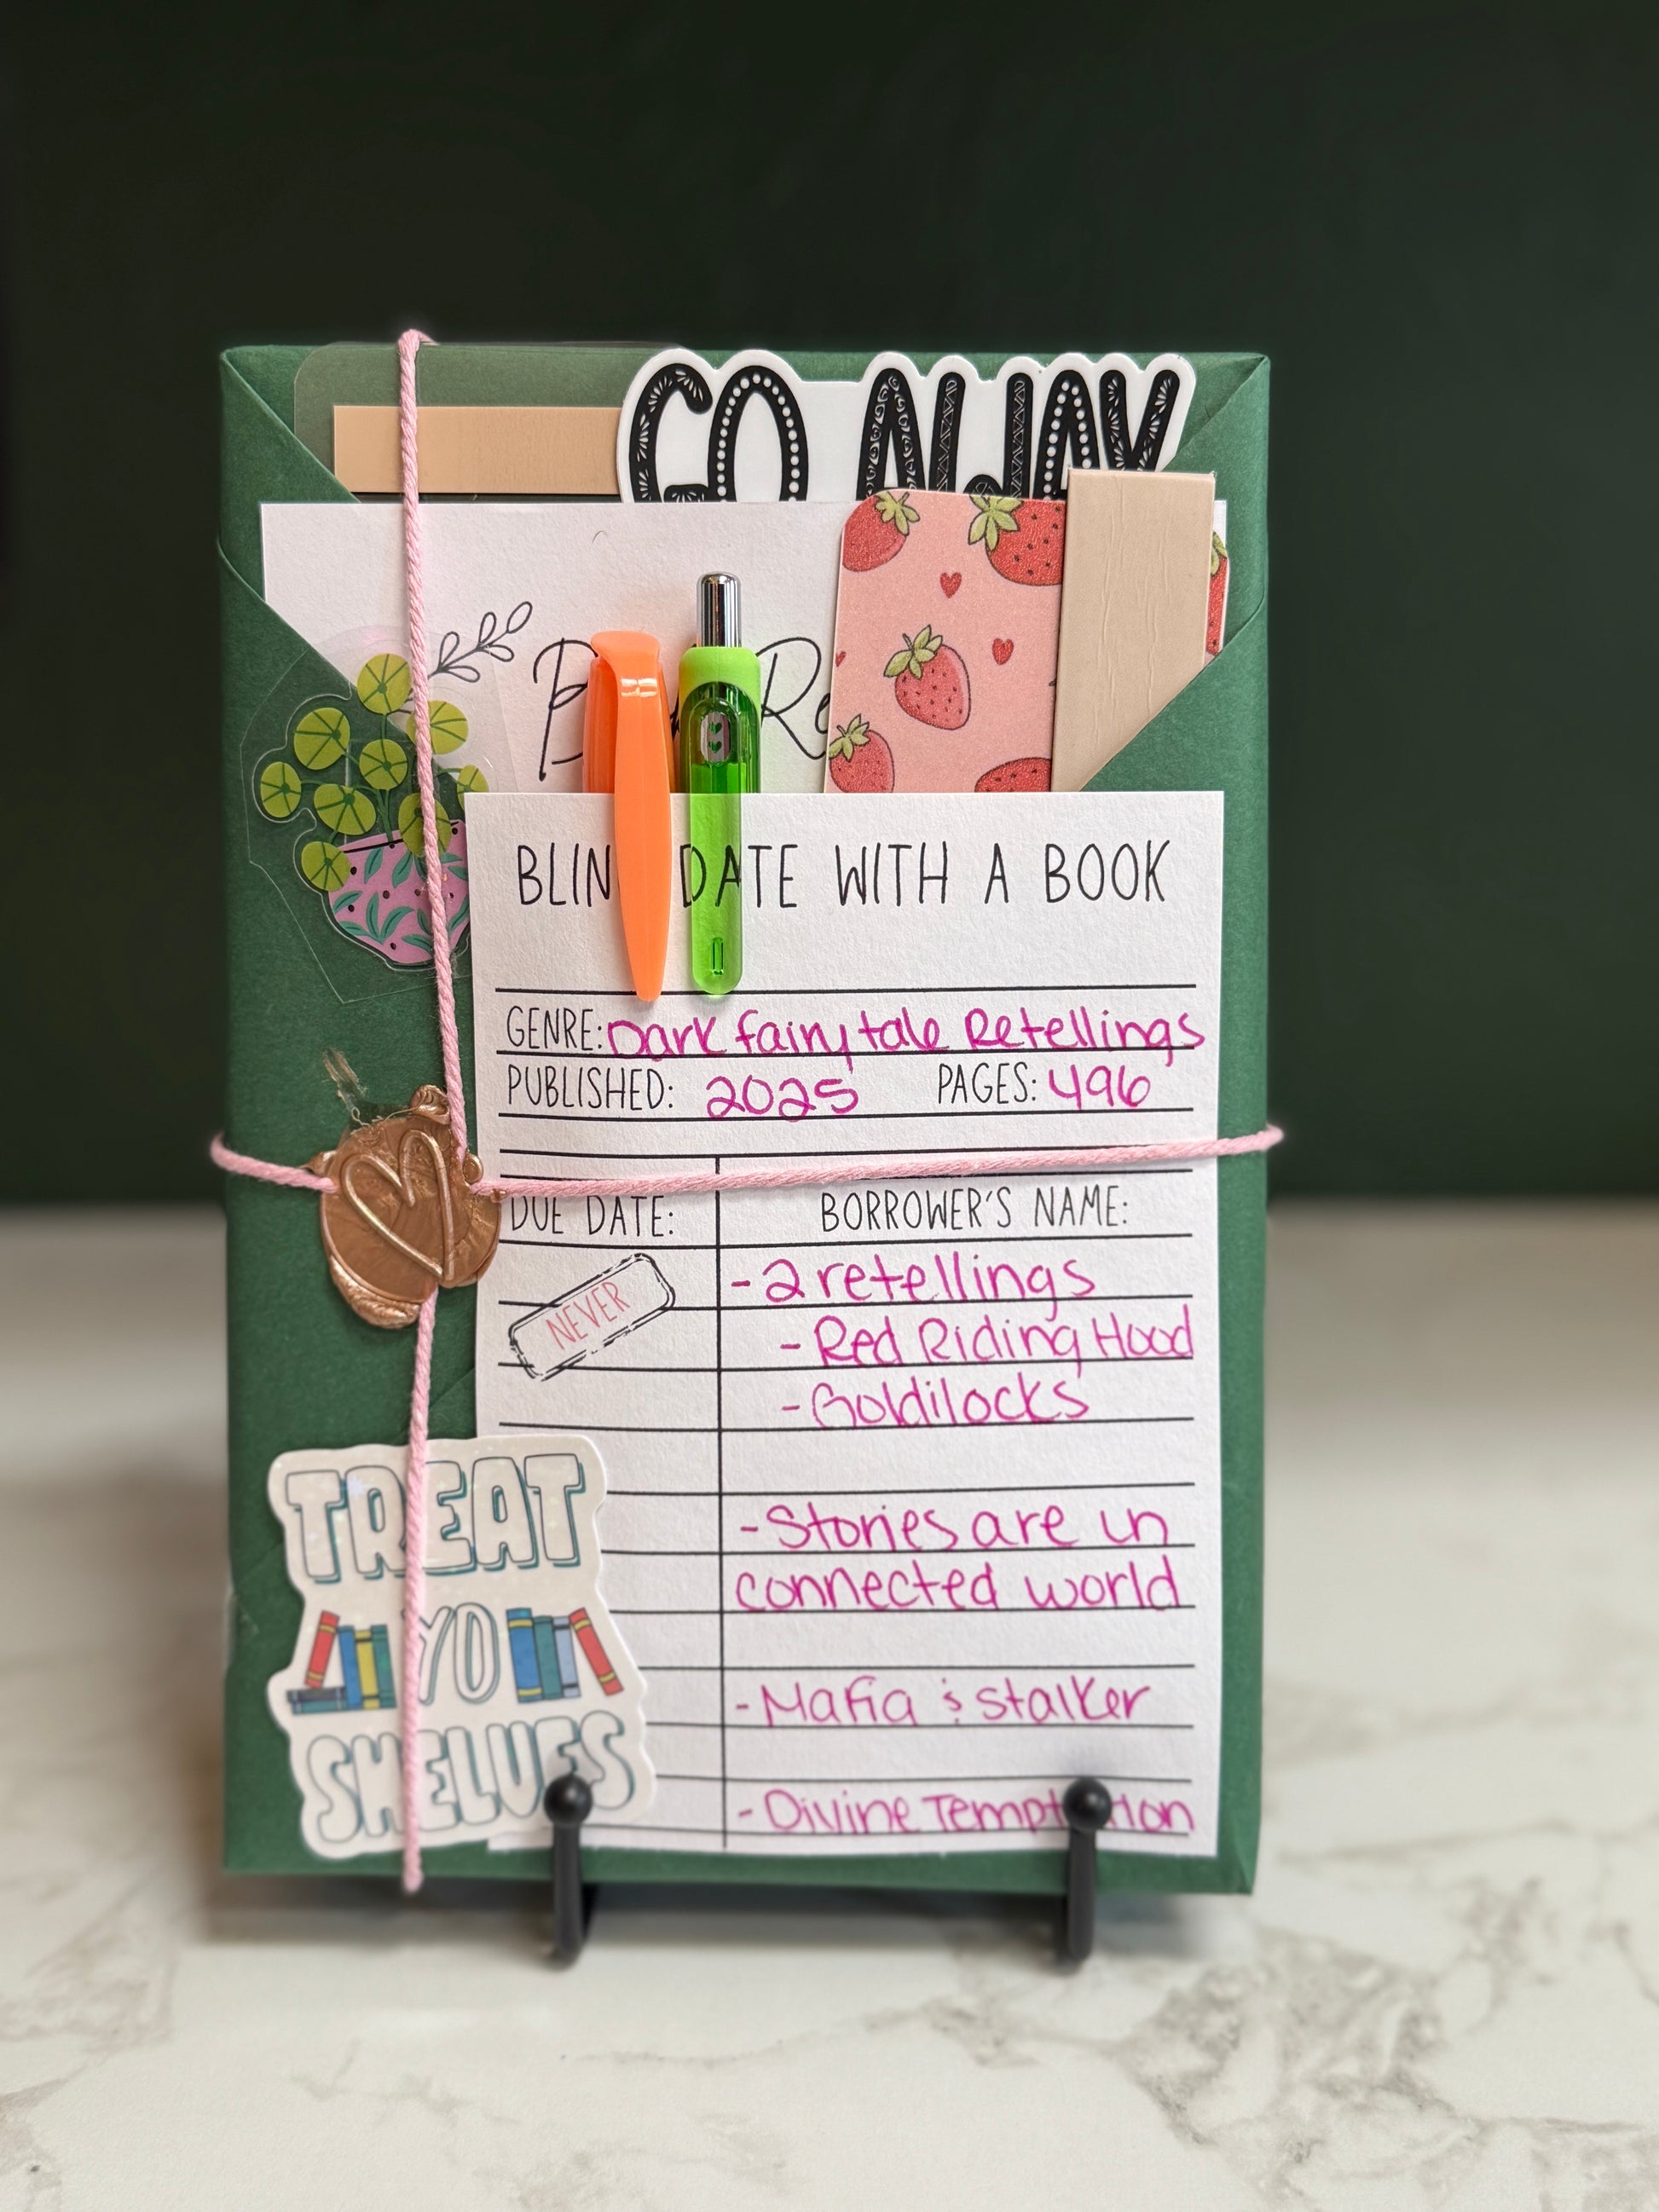 GO AWAY
BLIN DATE WITH A BOOK
GENRE: Dark fairytale Retellings
PUBLISHED: 2025 PAGES: 496
DUE DATE: BORROWER'S NAME:
NEVER
- 2 retellings
- Red Riding Hood
- Goldilocks
- Stories are in
connected world
- Mafia & stalker
- Divine Temptation
TREAT
YO
SHELVES